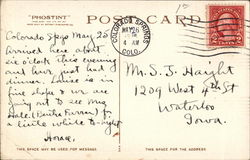 "PHOSTINT"
POST CARD
COLORADO SPRINGS
MAY 26
4 AM
COLO.
Colorado Spgs May 25
Arrived here about
six o'clock this evening
and have just had
dinner. Louise is in
fine shape & we are
going out to see Mrs
Hale, (Bertha Farran) for
a little while to-night
Horace
Mr. S. J. Haight
1209 West 4th St
Waterloo
Iowa.
THIS SPACE MAY BE USED FOR MESSAGE
THIS SPACE FOR THE ADDRESS